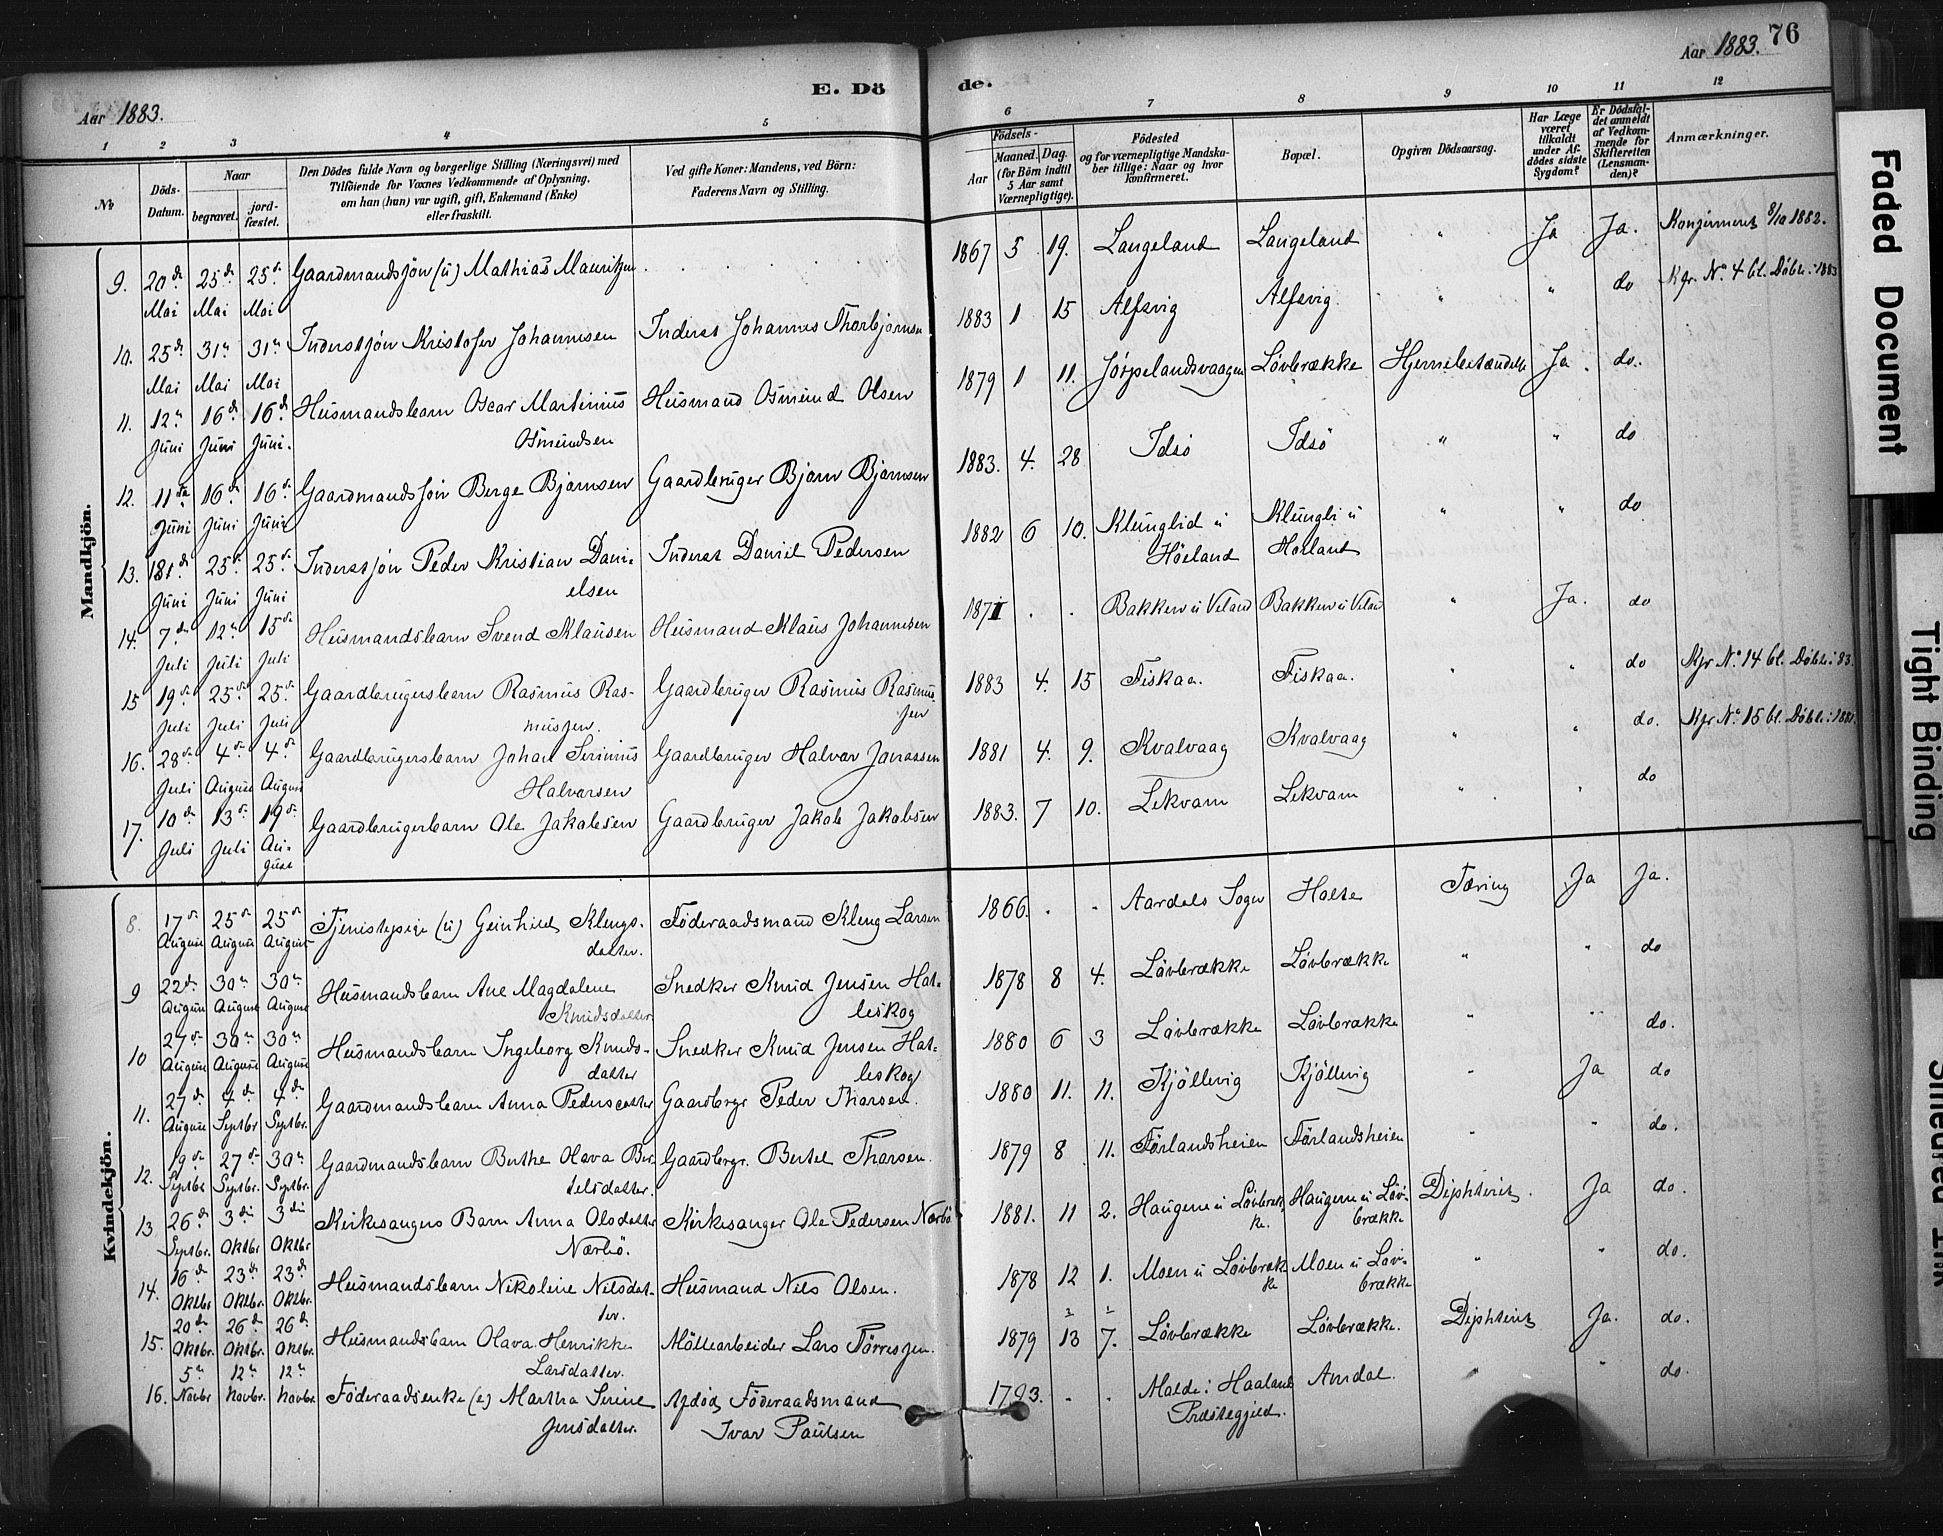 Aar 1883.
E. Dö
de.
Aar 1883.
76
1 2 3 4 5 6 7 8 9 10 11 12
№
Döds-Datum.
Naar
begravet.
jord-fæstet.
Den Dödes fulde Navn og borgerlige Stilling (Næringsvei) med
Tilföiende for Voxnes Vedkommende af Oplysning,
om han (hun) var ugift, gift, Enkemand (Enke)
eller fraskilt.
Ved gifte Koner: Mandens, ved Börn:
Faderens Navn og Stilling.
Födsels-
Aar
Maaned. Dag.
(for Börn indtil
5 Aar samt
Værnepligtige).
Födested
og for værnepligtige Mandska-
ber tillige: Naar og hvor
konfirmeret.
Bopæl.
Opgiven Dödsaarsag.
Har Læge
været
tilkaldt
under Af-
dödes sidste
Sygdom?
Er Dödsfal-
det anmeldt
af Vedkom-
mende for
Skifteretten
(Lensman-
den)?
Anmærkninger.
Mandkjön.
9. 20de Mai 25de Mai 25de Mai Gaardmandssön (u) Mathias Mauritzen 1867 5 19. Langeland Langeland " Ja Ja. Konfirmeret 8/10 1882.
10. 25de Mai 31te Mai 31te Mai Inderstsön Kristofer Johannesen Inderst Johannes Thorbjörnsen 1883 1 15 Alfsvig Alfsvig. " " do Kfr. No. 4 bl. Döbte i 1883
11. 12te Juni 16de Juni 16de Juni. Husmandsbarn Oscar Martinius
Osmundsen Husmand Osmund Olsen 1879 1 11. Jörpelandsvaagen Lövbrække Hjernebetændelse Ja. do.
12. 11te Juni 16de Juni 16de Juni Gaardmandssön Berge Bjørnsen Gaardbruger Bjørn Bjørnsen 1883. 4. 28 Idsö Idsö " " do
13. 18de Juni 25de Juni 25de Juni Inderstsön Peder Kristian Dani-
elsen Inderst Daniel Pedersen 1882 6 10. Klunglid u
Höeland Klungli u
Höeland " " do
14. 7de Juli 12te Juli 15de Juli Husmandsbarn Svend Klausen Husmand Klaus Johannesen 1871 . . Bakken u Veland Bakken u Veland " Ja. do
15 19de Juli 25de Juli 25de Juli Gaardbrugersbarn Rasmus Ras-
mussen. Gaardbruger Rasmus Rasmus-
sen 1883 4. 15 Fiskaa. Fiskaa. " " do Kfr No 14 bl. Döbte i 83.
16. 28de Juli 4de August 4de August Gaardbrugersbarn Johan Serinius
Halvorsen Gaardbruger Halvor Jonassen 1881 4. 9. Kvalvaag Kvalvaag " " do. Kfr No 15 bl. Döbte i 1881.
17. 10de Juli 13de Juli 19de Au-
gust Gaardbrugerbarn Ole Jakobsen Gaardbruger Jakob Jakobsen 1883. 7 10. Lekvam Lekvam " " do
Kvindekjön.
8. 17de August 25de August 25de August Tjenestepige (u) Gunhild Klengs-
datter. Föderaadsmand Kleng Larsen 1866. . . Aardals Sogn Halte Tæring Ja Ja.
9 22de August 30te August 30te August Husmandsbarn Ane Magdalene
Knudsdatter Snedker Knud Jensen Hat-
leskog 1878 8 4. Lövbrække Lövbrække " " do
10 27de August 30te August 30te August Husmandsbarn Ingeborg Knuds-
datter Snedker Knud Jensen Hat-
leskog 1880 6 3 Lövbrække Lövbrække " " do.
11. 27de August 4de Septbr 4de Septbr. Gaardmandsbarn Anna Pedersdatter Gaardbrgr Peder Tharsen. 1880 11. 11. Kjöllevig Kjöllevig " Ja do
12. 19de Septbr 27de Septbr. 30te Septbr. Gaardmandsbarn Berthe Olava Ber-
telsdatter. Gaardbrgr. Bertel Tharsen. 1879 8 11. Förlandsheien Förlandsheien " " do.
13 26de Septbr. 3die Oktbr 3die Oktbr Kirkesangers Barn Anna Olsdatter
Nærbö. Kirkesanger Ole Pedersen Nærbö 1881. 11 2. Haugene u Lövbræk-
ke. Haugene u Löv-
brække Diphterit. Ja do.
14. 16de Oktbr 23de Oktbr. 23de Oktbr. Husmandsbarn Nikoline Nilsdat-
ter. Husmand Nils Olsen. 1878 12 1. Moen u Lövbræk
ke Moen u Löv-
brække " " do.
15. 20de Oktbr. 26de Oktbr. 26de Oktbr. Husmandsbarn Olava Henrikke
Larsdatter. Möllearbeider Lars Törresen. 1879 13 7. Lövbrække Lövbrække. Diphterit Ja. do.
16. 5te Novbr 12te Novbr. 12te Novbr. Föderaadsenke (e) Martha Serine
Jensdatter. Afdöd Föderaadsmand
Ivar Paulsen 1793. . . Malde i Haaland
Præstegjeld. Amdal. " " do.
Faded Document
Tight Binding
Smeared Ink